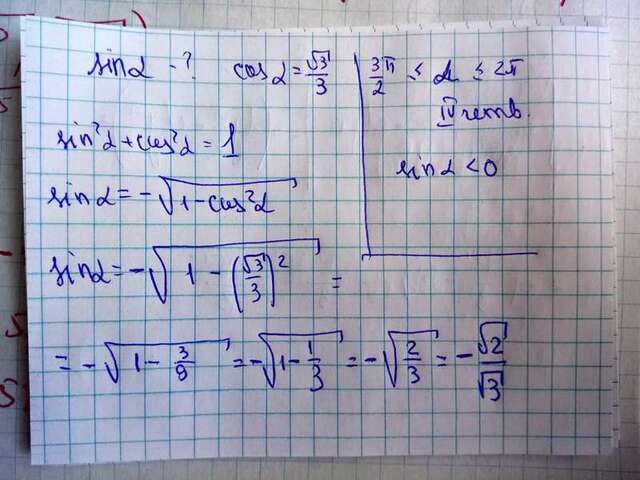 sinα - ? cosα = √3/3
3π/2 ≤ α ≤ 2π
IV четв.
sinα < 0
sin²α + cos²α = 1
sinα = -√(1 - cos²α)
sinα = -√(1 - (√3/3)²) =
= -√(1 - 3/9) = -√(1 - 1/3) = -√(2/3) = -√2/√3